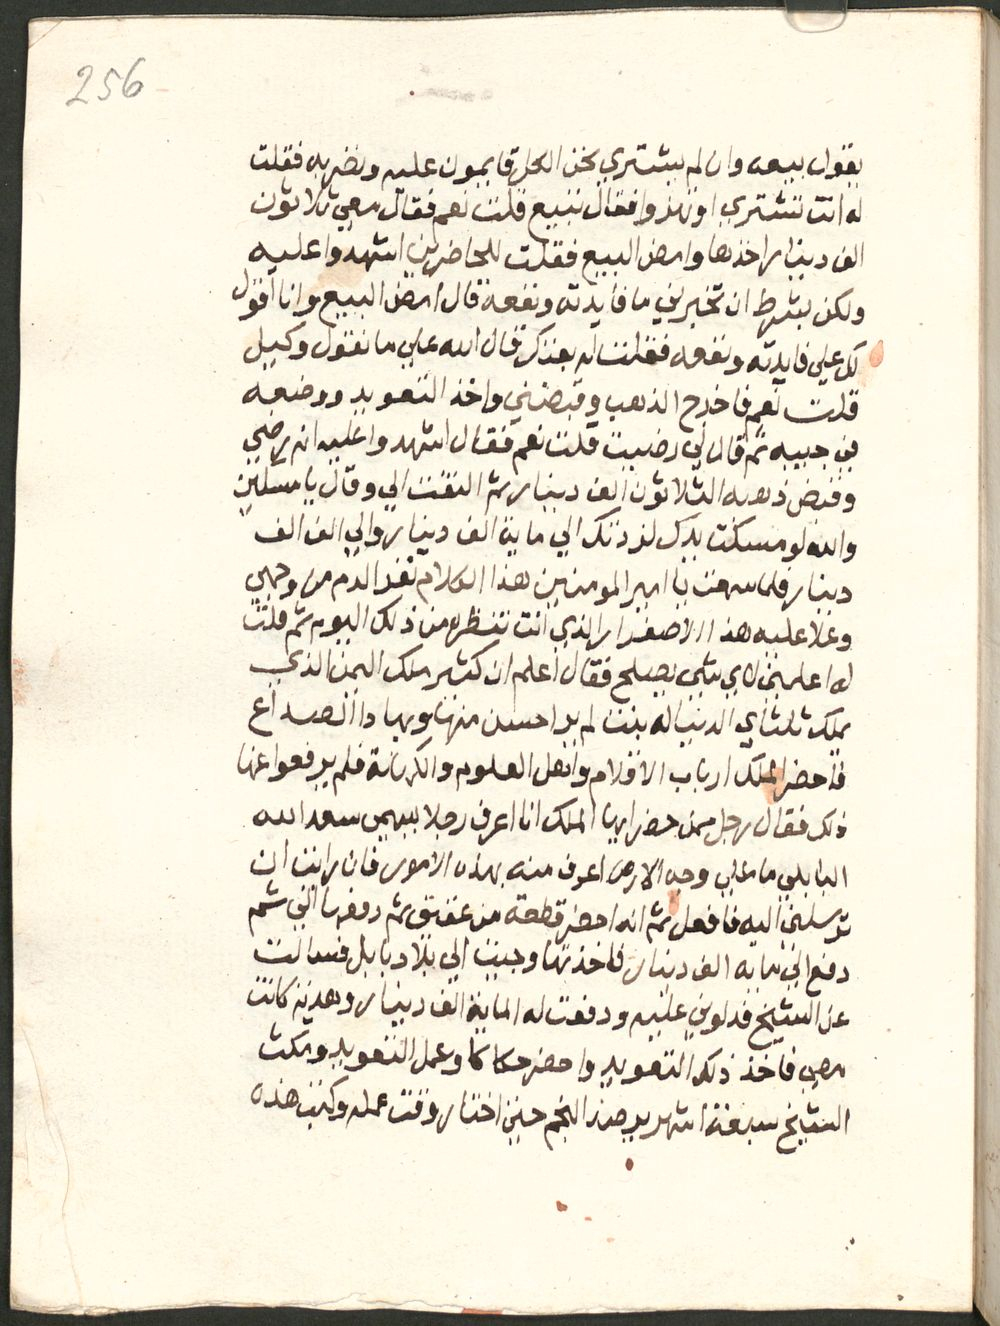 256
يقول بيعه وان لم يشتري نحن الكل قايمون عليه ونضربه فقلت
له انت تشتري او تهذوا فقال نبيع قلت نعم فقال معي ثلاثون
الف دينار اخذها وامض البيع فقلت للحاضرين اشهدوا عليه
ولكن بشرط ان تخبرني ما فايدته ونفعه قال امض البيع وانا اقول
لك علي فايدته ونفعه فقلت له بعتك قال الله علي ما نقول وكيل
قلت نعم فاخرج الذهب وقبضني واخذ التعويد ووضعه
في جيبه ثم قال لي رضيت قلت نعم فقال اشهدوا عليه انه رضي
وقبض ذهبه الثلاثون الف دينار ثم التفت الي وقال يا مسكين
والله لو مسكت يدك لزدتك الي ماية الف دينار والي الف الف
دينار فلما سمعت يا امير المومنين هذا الكلام نفد الدم من وجهي
وعلا عليه هذا الاصفرار الذي انت تنظره من ذلك اليوم ثم قلت
له اعلمني لاي شي يصلح فقال اعلم ان كشر ملك اليمن الذي
ملك ثلثاي الدنيا له بنت لم ير احسن منها وبها داا الصداع
فاحضر الملك ارباب الاقلام واهل العلوم والكهانة فلم يرفعوا عنها
ذلك فقال رجل ممن حضر ايها الملك انا اعرف رجلا يسمي سعد الله
البابلي ما علي وجه الارض اعرف منه بهذه الامور فان رايت ان
ترسلني اليه فافعل ثم انه احضر قطعة من عقيق ثم دفعها الي ثم
دفع الي ماية الف دينار فاخذتها وجيت الي بلاد بابل فسالت
عن الشيخ فدلوني عليه ودفعت له الماية الف دينار وهدية كانت
معي فاخذ ذلك التعويد واحضر حكاكا وعمل التعويد ومكث
الشيخ سبعة اشهر يرصد النجم حتي اختار وقت عمله وكتب هذه